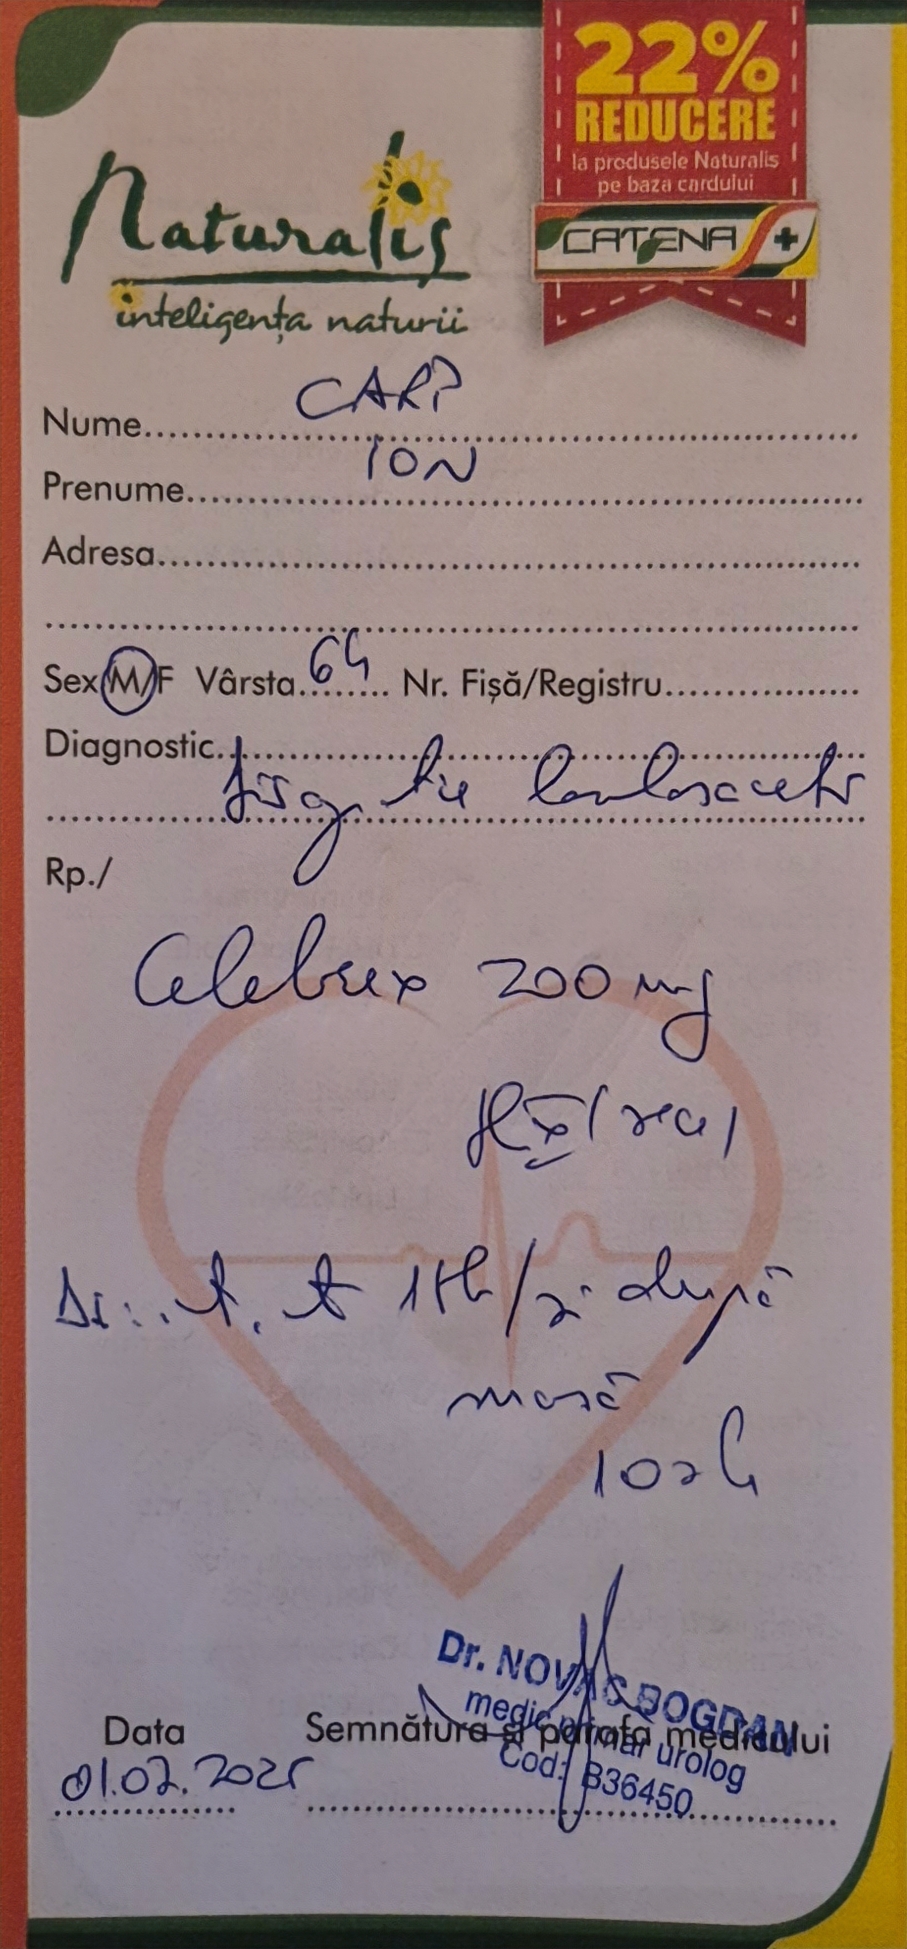 22%
REDUCERE
la produsele Naturalis
pe baza cardului
CATENA +
Naturalis
inteligența naturii
Nume CARP
Prenume ION
Adresa
Sex M/F Vârsta 64 Nr. Fișă/Registru
Diagnostic
Rp./
Celebrex 200 mg
1 tb/zi după
masă
10 zile
Dr. NOVAC BOGDAN
medic primar urolog
Cod: B36450
Data Semnătura și parafa medicului